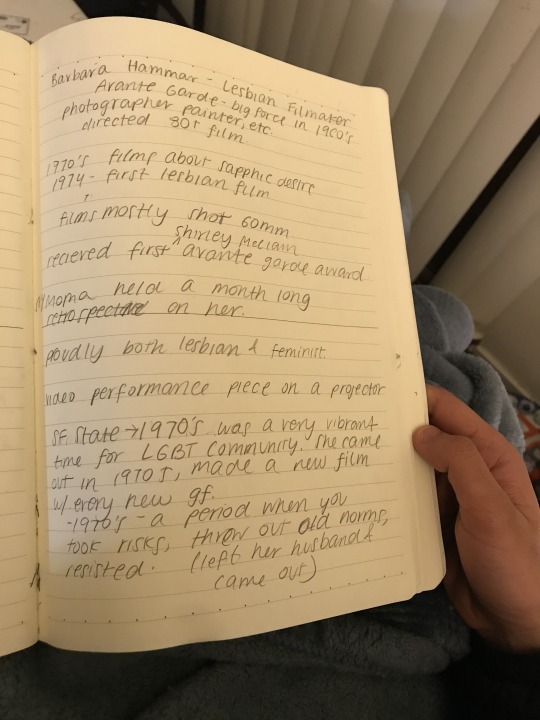 Barbara Hammar - Lesbian Filmaker
Avante Garde - big force in 1900's
photographer painter, etc.
directed 80+ film
1970's films about sapphic desire
1974 - first lesbian film
films mostly shot 60mm
shirley McClain
recieved first ^ avante garde award
moma held a month long
retrospective on her.
proudly both lesbian & feminist.
video performance piece on a projector
SF State → 1970's was a very vibrant
time for LGBT Community. She came
out in 1970s, made a new film
w/ every new gf.
-1970's - a period when you
took risks, threw out old norms,
resisted. (left her husband &
came out)